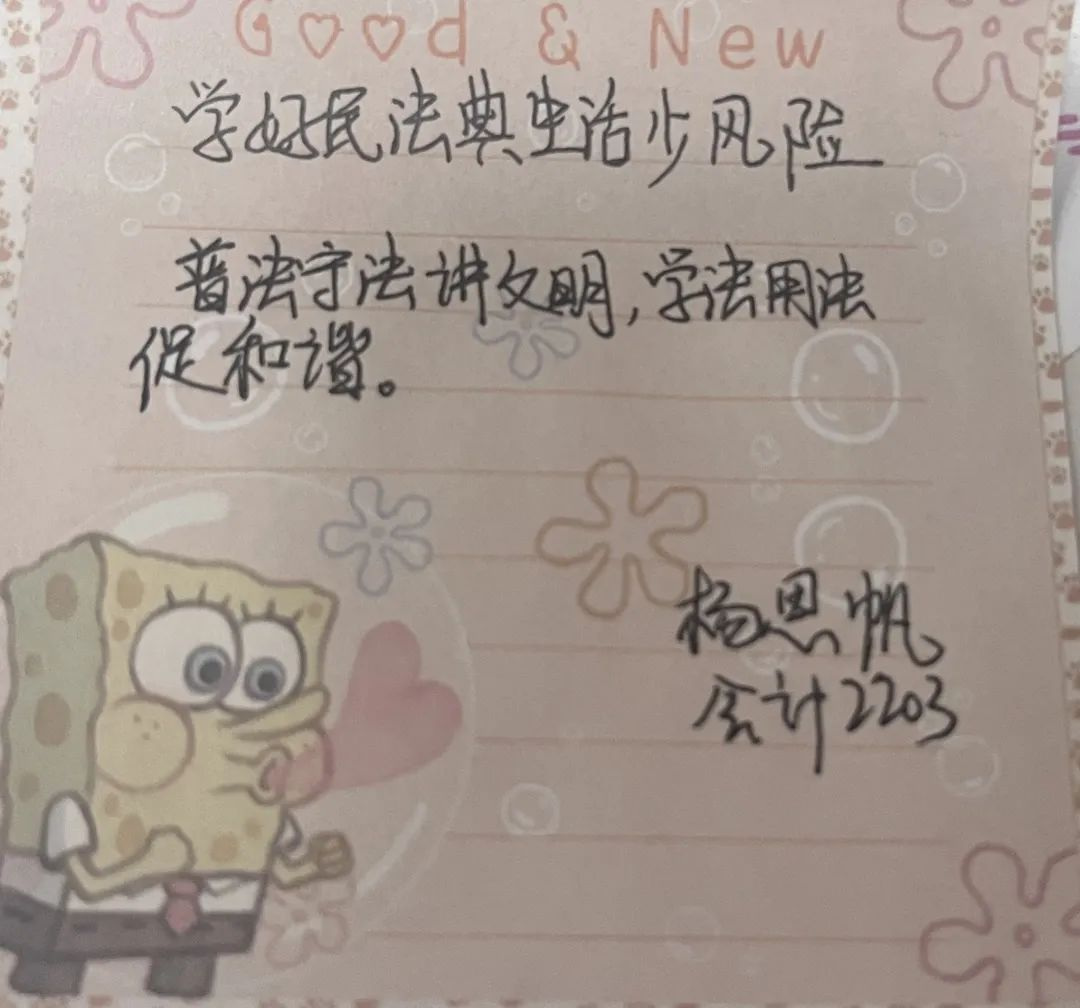 Good & New
学好民法典生活少风险
普法守法讲文明,学法用法
促和谐。
杨思帆
会计2203